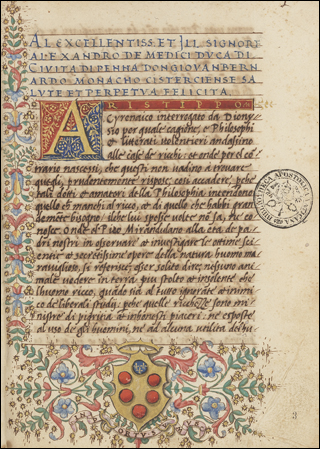 AL EXCELLENTISS. ET ILL SIGNORE
ALEXANDRO DE MEDICI DUCA DI
CIVITA DI PENNA DON GIOVAN BERN
ARDO MONACHO CISTERCIENSE SA
LUTE ET PERPETUA FELICITA.
ARISTIPPO
Cyrenaico interrogato da Diony
sio per quale cagione, e Philosophi
e literati volentieri andassino
alle case de richi, et onde per el co(n)
trario nascessi, che questi non vadino a trovare
quegli, prudentemente rispose, cosi accadere, perche
tali dotti, et amatori della Philosophia intendono
quello che manchi al richo, et di quello che habbi gran
demente bisogno, il che lui spesse volte no sa,
nosser. Onde el Pico Mirandulano alla eta de pa
dri nostri in observare et investigare le ottime sen
tentie et secretissime opere della natura huomo ma
raviglioso, si referisce, esser solito dire, nessuno ani
male vedersi in terra piu stolto et insolente che
lhuomo richo, quando sia al tutto ignorante et inimi
co de liberali studii, perche quelle richezze sono mi
nistre di pigritia et inhonesti piaceri, ne esposte
al uso de gli huomini, ne ad alcuna utilita del vi
BIBLIOTECA APOSTOLICA
VATICANA
3